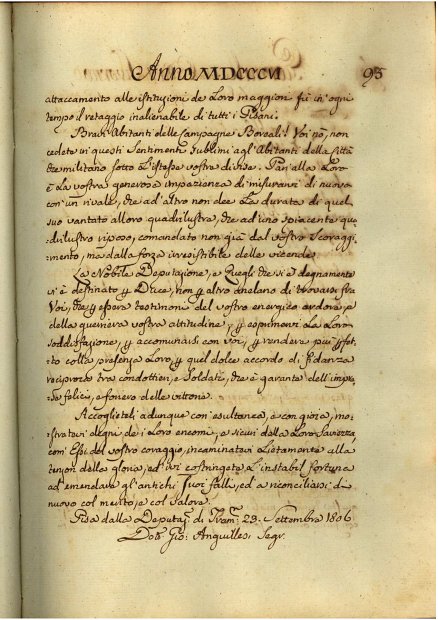 Anno MDCCCVI 95
attaccamento alle istituzioni de Loro maggiori fù in ogni
tempo il retaggio inalienabile di tutti i Pisani.
Bravi Abitanti delle Campagne Boreali! Voi non
cedete in questi sentimenti sublimi agl'Abitanti della Città
che militano sotto l'istesse vostre divise. Pari alla Loro
è la vostra generosa impazienza di misurarvi di nuovo
con un rivale, che ad'altro non dee la durata di quel
suo vantato alloro quadrilustre, che ad uno spiacente qua
drilustre riposo, comandato non già dal vostro scoraggi
mento, ma dalla forza irresistibile delle vicende.
La Nobile Deputazione, e Quegli che si è degnamente
vi è destinato p Duce, non p altro anelano di trovarsi fra
Voi, che p essere testimoni del vostro energico ardore, e
della guerriera vostra attitudine, p esprimervi la Loro
soddisfazione, p accomunarsi con voi, p rendere più perfet
to colla presenza Loro, p quel dolce accordo di fidanza
reciproca tra condottieri, e Soldati, che è garante dell'impre
se felici, e foriero delle vittorie.
Accoglieteli adunque con esultanza, e con gioia, mo
stratevi degni de i Loro encomi, e sicuri della Loro saviezza,
com'Essi del vostro coraggio, incaminatevi Lietamente alla
tenzon della gloria, ed ivi costringete l'instabil fortuna
ad'emendare gl'antichi suoi falli, ed a riconciliarsi di
nuovo col merito, e col valore.
Pisa dalla Deputaz. di Tram. 23. Settembre 1806
Dott. Gio: Anguilles. Segr.